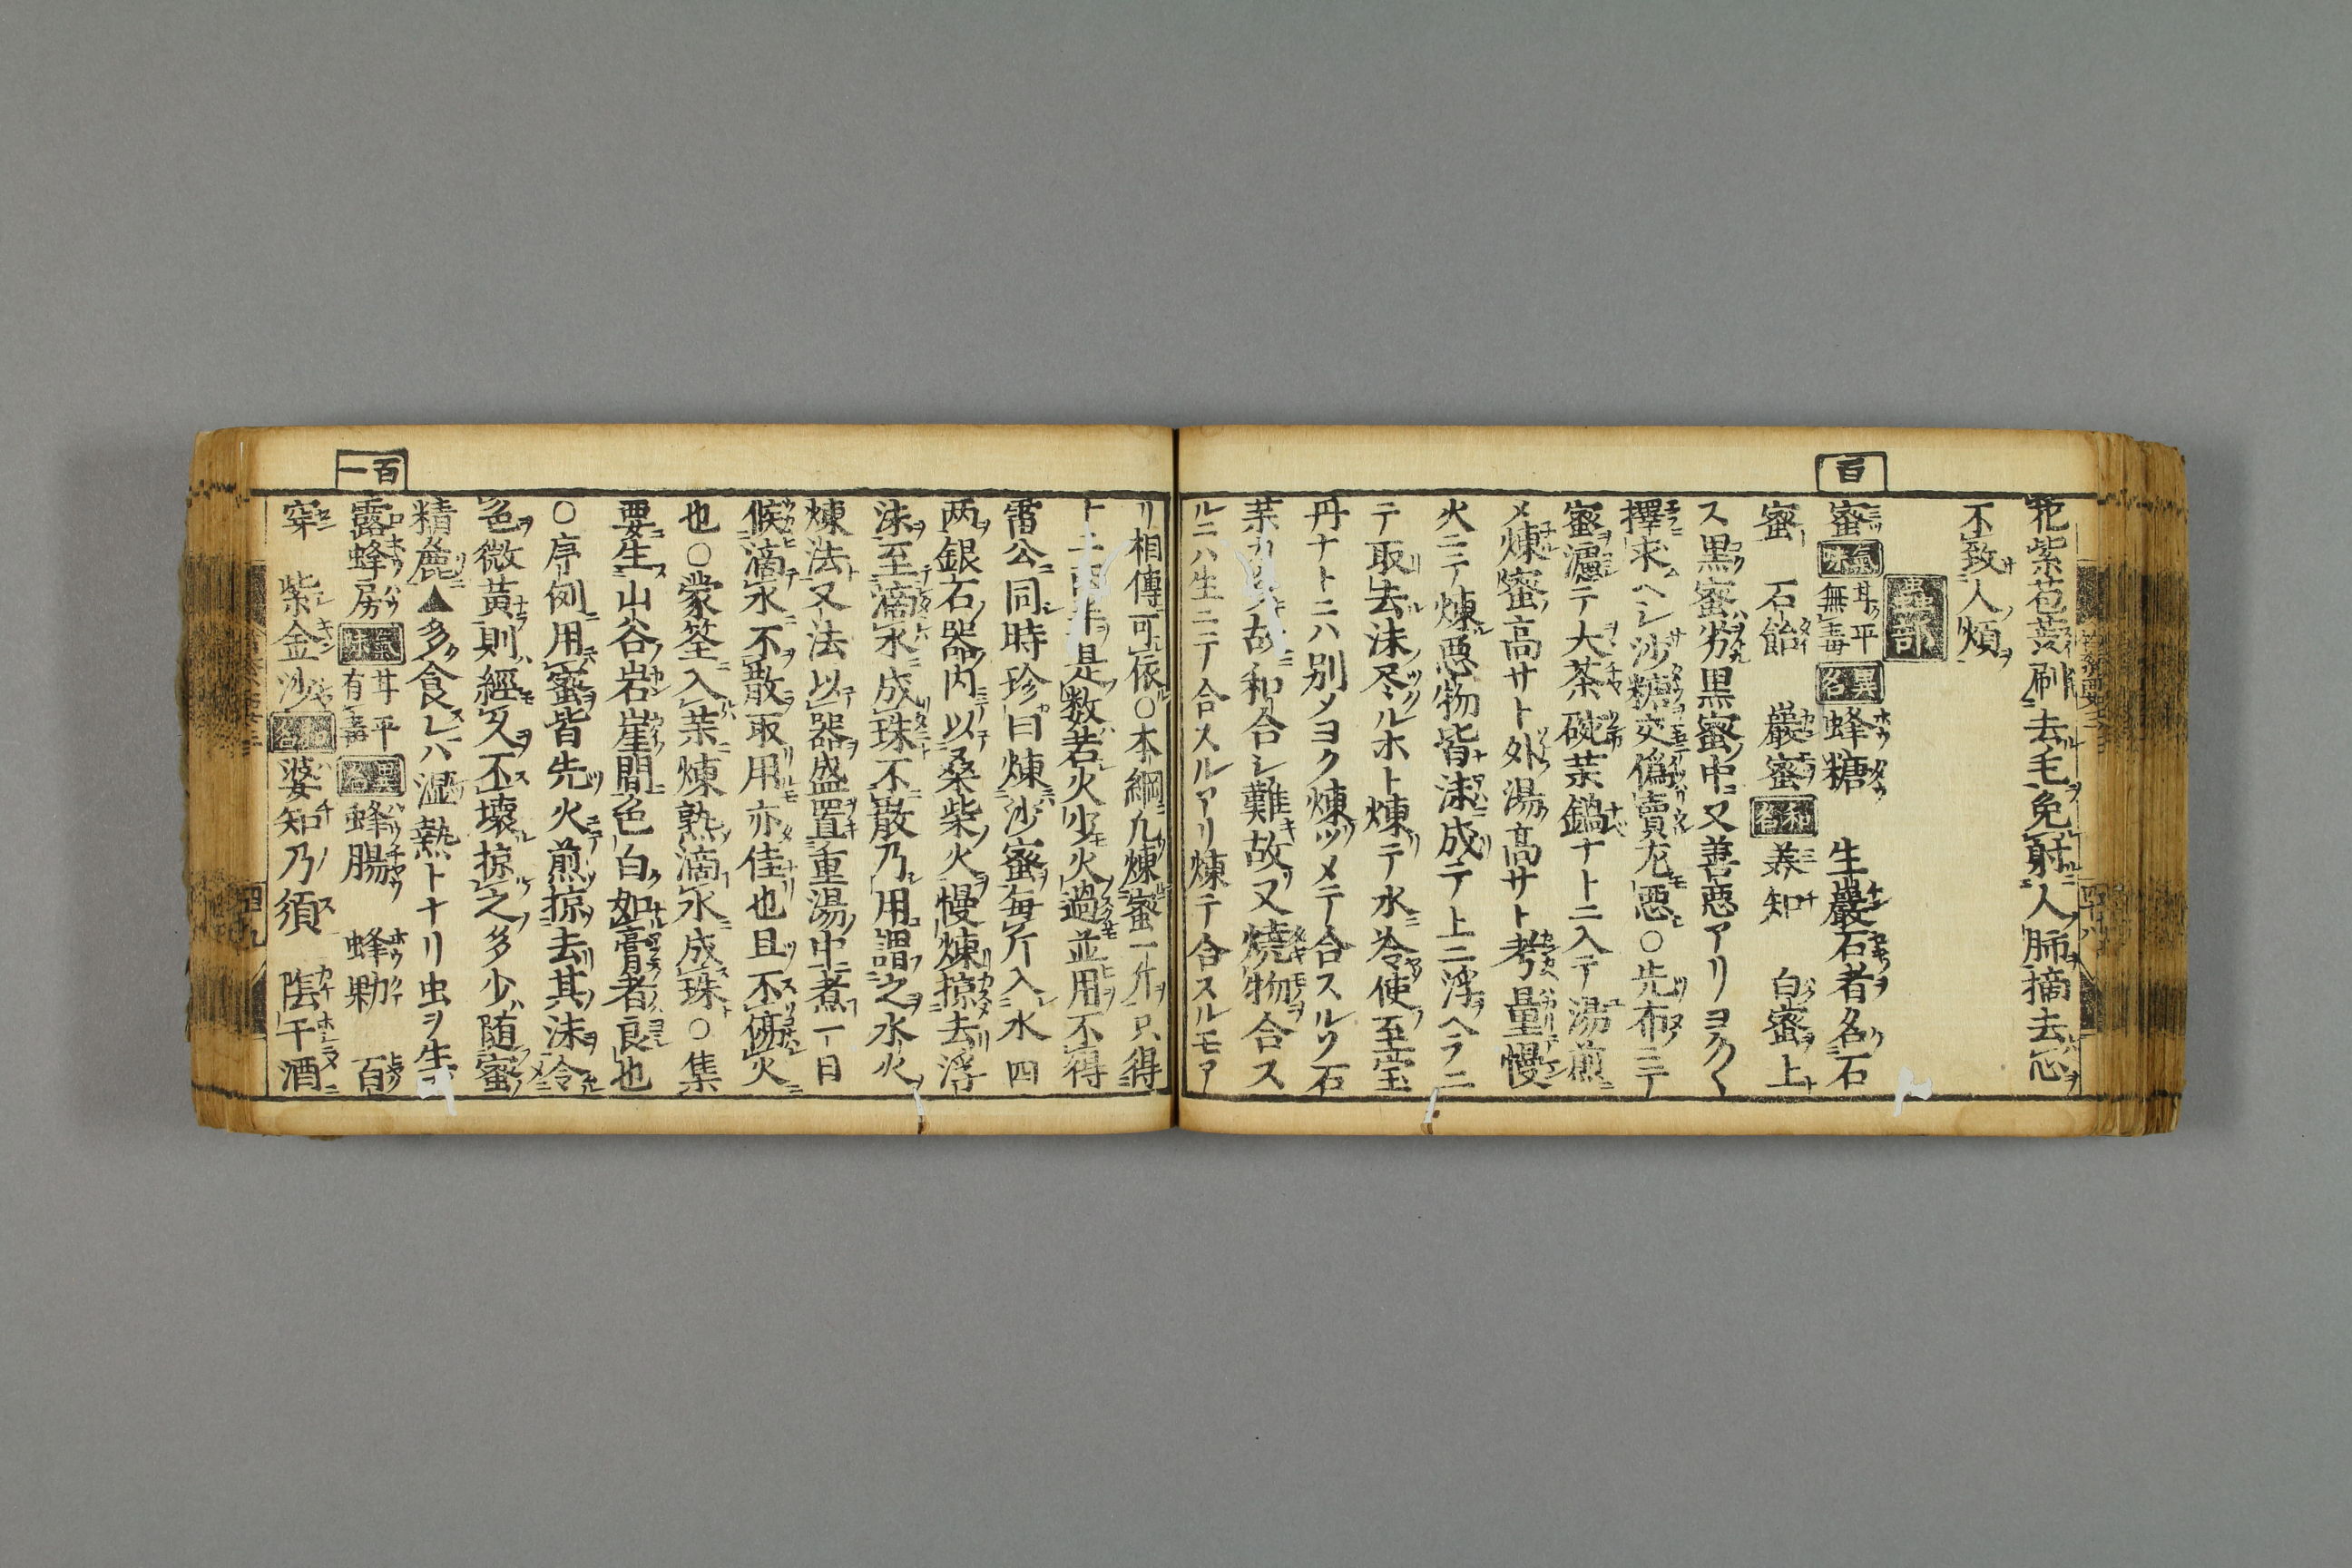 百
花紫苞菱刷去毛免射人肺摘去心
不致人煩
蟲部
蜜 氣味 甘平無毒 異名 蜂糖 生巖石者名石
蜜 石飴 巖蜜 和名 美知 白蜜上
ス黒蜜劣黒蜜中又善悪アリヨク〱
擇求ヘシ沙糖交偽賣尤悪○先布ニテ
蜜濾テ大茶碗茶鍋ナトニ入テ湯煎
メ煉蜜高サト外湯高サト考量慢
火ニテ煉悪物皆沫成テ上ニ浮ヘラニ
テ取去沫尽ルホト煉テ水冷使至宝
丹ナトニハ別メヨク煉ツメテ合スルソ石
故和合シ難故又燒物合ス
ルニハ生ニテ合スルアリ煉テ合スルモア
リ相傳可依○本綱凡煉蜜一斤只得
十二两半是数若火少火過並用不得
雷公同時珍曰煉沙蜜毎斤入水四
两銀石器内以桑柴火慢煉掠去浮
沫至滴水成珠不散乃用謂之水火
煉法又法以器盛置重湯中煮一日
候滴水不散取用亦佳也且不傷火
也○蒙筌入茶煉熟滴水成珠○集
要生山谷岩崖間色白如膏者良也
○序例用蜜皆先火煎掠去其沫令
色微黄則經久不壊掠之多少随蜜
精麁▲多食レハ湿熱トナリ虫ヲ生
百一
露蜂房 氣味 甘平有毒 異名 蜂腸 蜂勦 百
穿 紫金沙 和名 婆知乃須 陰干酒
四十八
四十九